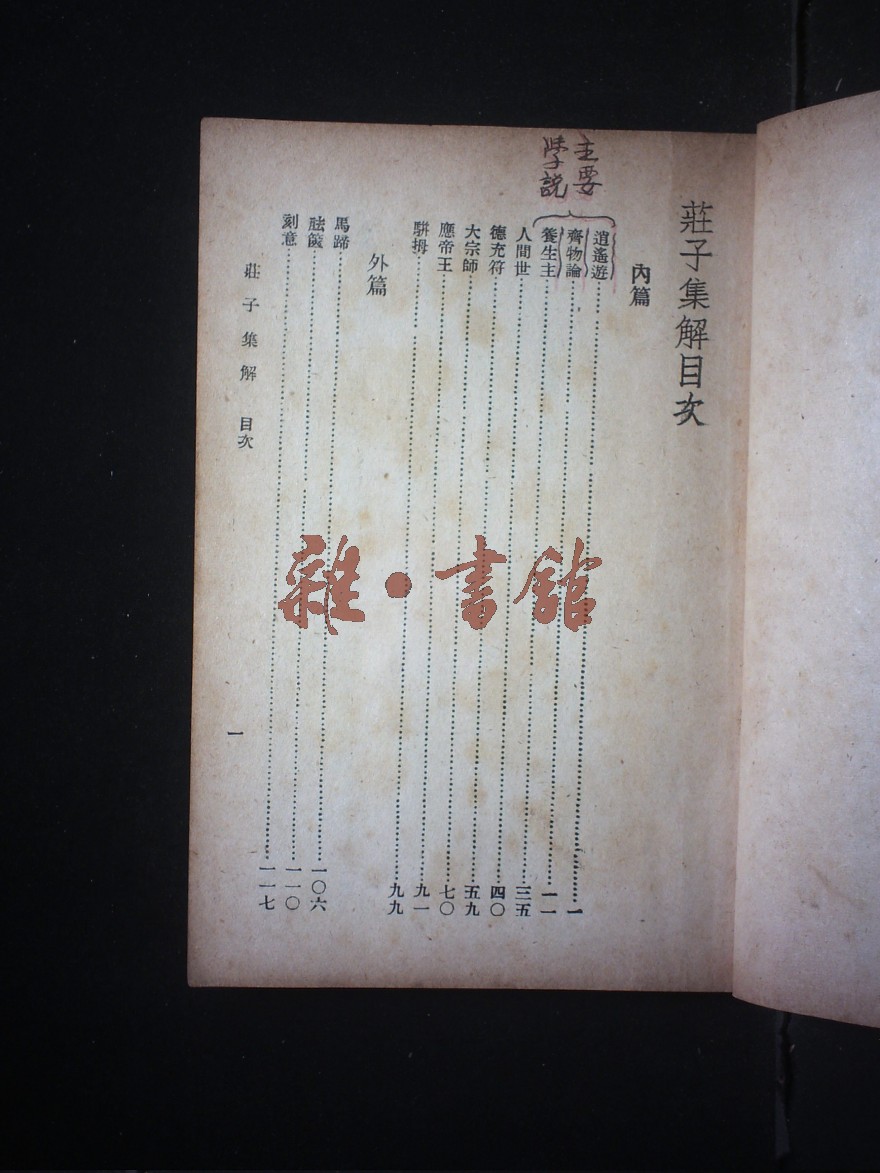 莊子集解目次
內篇
主要
學說
逍遙遊……一
齊物論……一一
養生主……三五
人間世……四〇
德充符……五九
大宗師……七〇
應帝王……九一
駢拇……九九
外篇
馬蹄……一〇六
胠篋……一一〇
刻意……一一七
莊子集解 目次
一
雜·書館